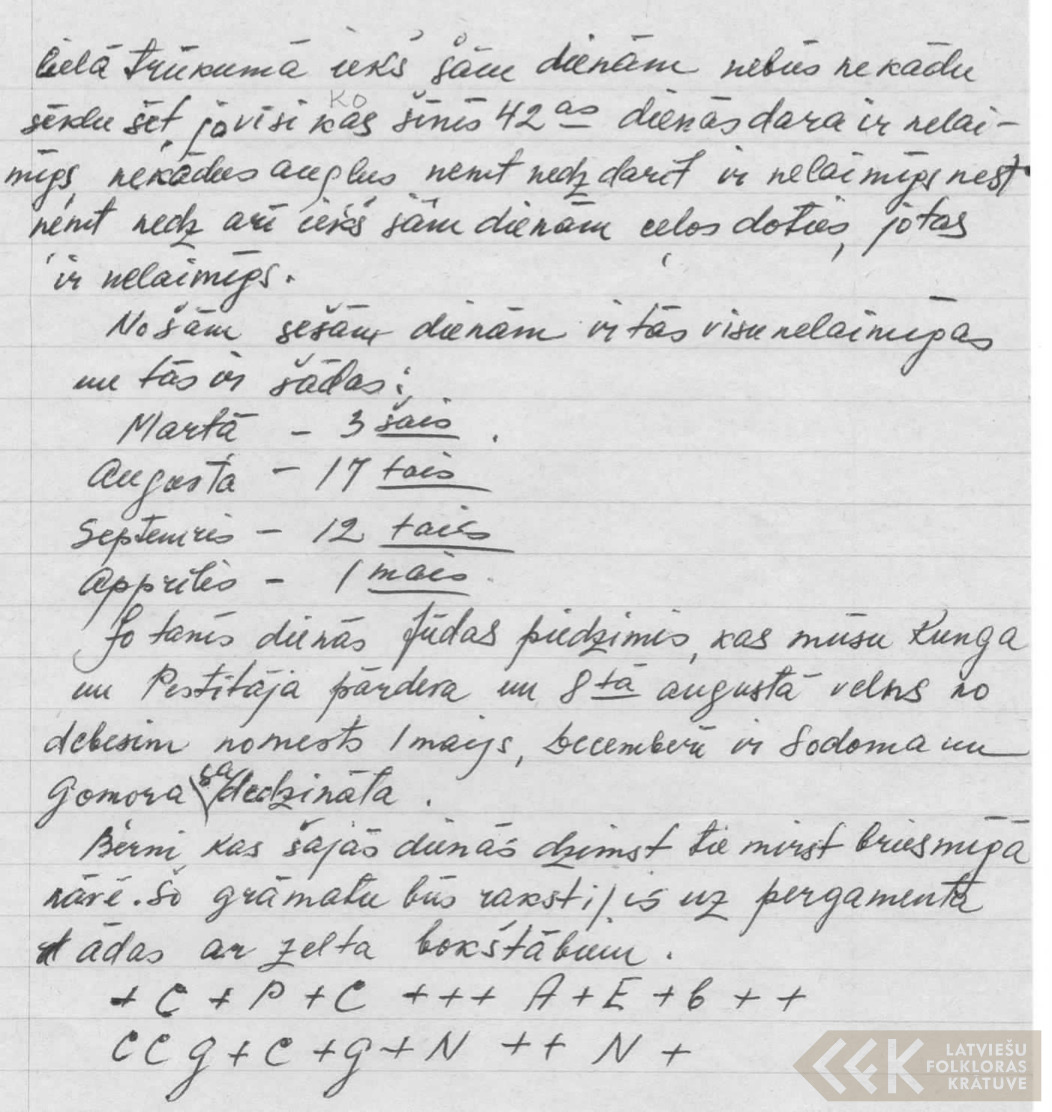 lielā trūkumā iekš šām dienām nebūs nekādu
sēklu sēt, jo visi kas šinīs 42 as dienās dara ir nelai-
mīgs, nekādus augļus ņemt nedz darīt ir nelaimīgs nest
ņemt nedz arī iekš šām dienām ceļos doties, jo tas
ir nelaimīgs.
No šām sešām dienām ir tās visu nelaimīgas
un tās ir šādas:
Martā - 3 šais.
Augustā - 17 tais
Septemris - 12 tais
Apprilis - 1 mais.
Jo tanīs dienās Jūdas piedzimis, kas mūsu Kunga
un Pestītāja pārdeva un 8 tā augustā velns no
debesim nomests 1 maijs, Decemberī ir Sodoma un
Gomora sadedzināta.
Bērni, kas šajās dienās dzimst tie mirst briesmīgā
nāvē. Šo grāmatu būs rakstījis uz pergamenta
ādas ar zelta bokštābiem.
+ C + P + C +++ A + E + b + +
CC g + C + g + N ++ N +
LATVIEŠU
FOLKLORAS
KRĀTUVE